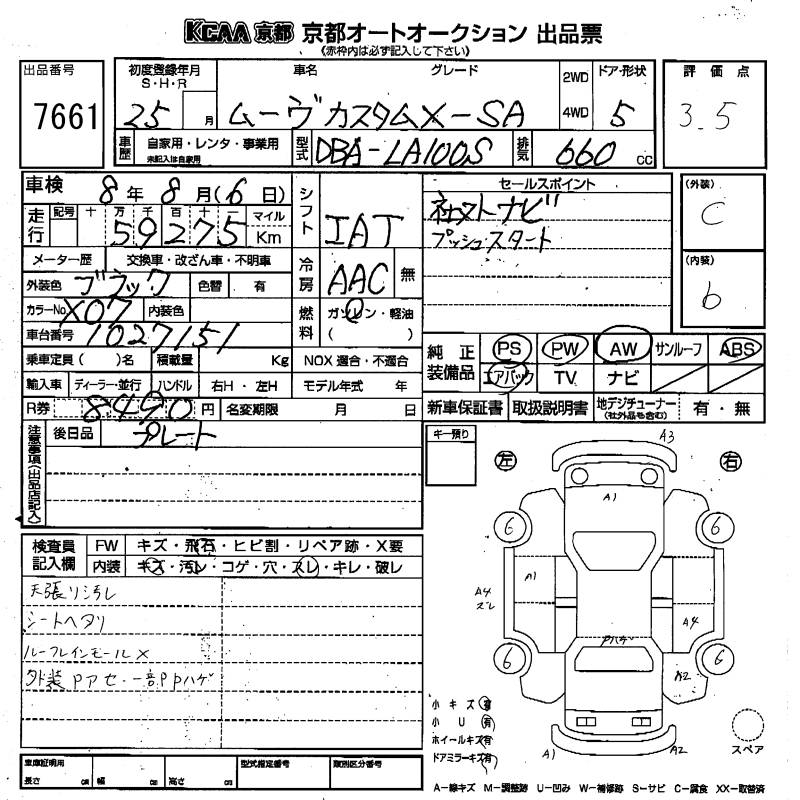 KCAA 京都 京都オートオークション 出品票
(赤枠内は必ず記入して下さい)
出品番号
7661
初度登録年月
S・H・R
25 月
車名 グレード
ムーヴカスタムX-SA
2WD
4WD
ドア・形状
5
評価点
3.5
車歴 自家用・レンタ・事業用
未記入は自家用
型式 DBA-LA100S
排気 660 CC
車検 8年8月(6日)
走行 記号 十 万 千 百 十 一 マイル
59275 Km
メーター歴 交換車・改ざん車・不明車
外装色 ブラック 色替 有
カラーNo. X07 内装色
車台番号 1027151
乗車定員( )名 積載量 Kg NOX適合・不適合
輸入車 ディーラー・並行 ハンドル 右H・左H モデル年式 年
R券 8,490円 名変期限 月 日
シフト IAT
冷房 AAC 無
燃料 ガソリン・軽油
( )
セールスポイント
社外ナビ
プッシュスタート
(外装)
C
(内装)
b
純正装備品 PS PW AW サンルーフ ABS
エアバック TV ナビ
新車保証書 取扱説明書 地デジチューナー
(社外品も含む) 有・無
注意事項(出品店記入) 後日品 プレート
キー預り
左 右
A3
A1
6 6
A1
A4
ズレ
A4
Pハゲ
6 6
A2
A1 A2
スペア
検査員記入欄 FW キズ・飛石・ヒビ割・リペア跡・X要
内装 キズ・汚レ・コゲ・穴・スレ・キレ・破レ
天張り汚レ
シートヘタリ
ルーフレインモールX
外装Pアセ・一部PPハゲ
小キズ 有
小U 有
ホイールキズ 有
ドアミラーキズ 有
A-線キズ M-調整跡 U-凹み W-補修跡 S-サビ C-腐食 XX-取替済
車庫証明用 型式指定番号 類別区分番号
長さ cm 幅 cm 高さ cm